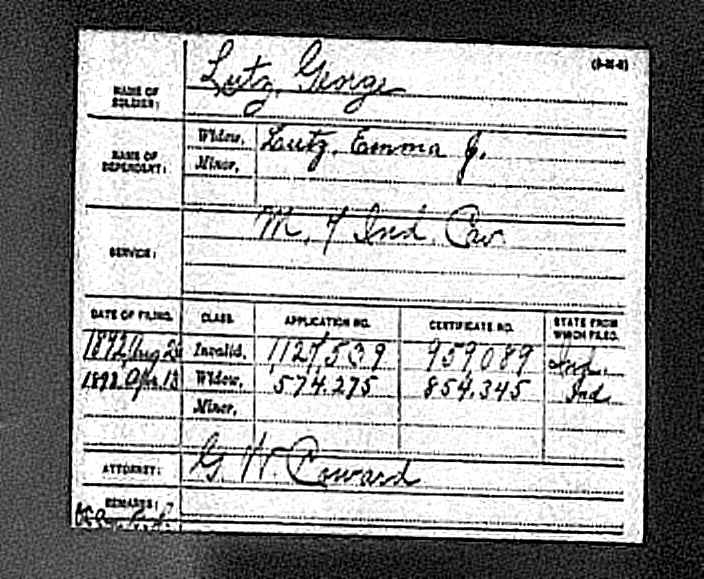 (3-M-8)
Lutz, George
NAME OF SOLDIER:
NAME OF DEPENDENT:
Widow, Lutz, Emma J.
Minor,
SERVICE: M, 7 Ind. Cav.
DATE OF FILING. CLASS. APPLICATION NO. CERTIFICATE NO. STATE FROM WHICH FILED.
1892, Aug Invalid, 1127,539 959,089 Ind.
Apr. 13 Widow, 574.275 854.345 Ind
Minor,
ATTORNEY: G. W. Coward
REMARKS: